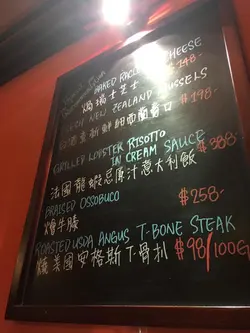 BAKED RACLETTE CHEESE
焗瑞士芝士 $148-
FRESH NEW ZEALAND MUSSELS
白酒煮新鮮紐西蘭青口 $198-
GRILLED LOBSTER RISOTTO
IN CREAM SAUCE $388-
法國龍蝦忌廉汁意大利飯
BRAISED OSSOBUCO
燴牛膝 $258-
ROASTED USDA ANGUS T-BONE STEAK
燒美國安格斯T-骨扒 $98/100G